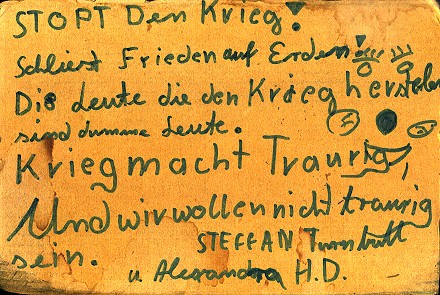 STOPT Den Krieg!
Schliest Frieden auf Erden!
Die Leute die den Krieg herstelen
sind dumme Leute.
Krieg macht Traurig,
Und wir wollen nicht traurig
sein.
STEFFAN Turnbutt
u Alexandra H.D.